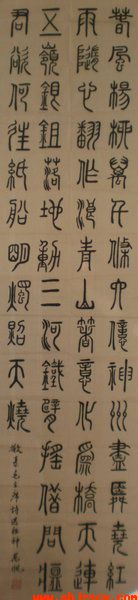 春風楊柳萬千條六億神州盡舜堯紅
雨隨心翻作浪青山著意化為橋天連
五嶺銀鉏落地動三河鐵臂搖借問瘟
君欲何往紙船明燭照天燒
敬录毛主席詩送瘟神